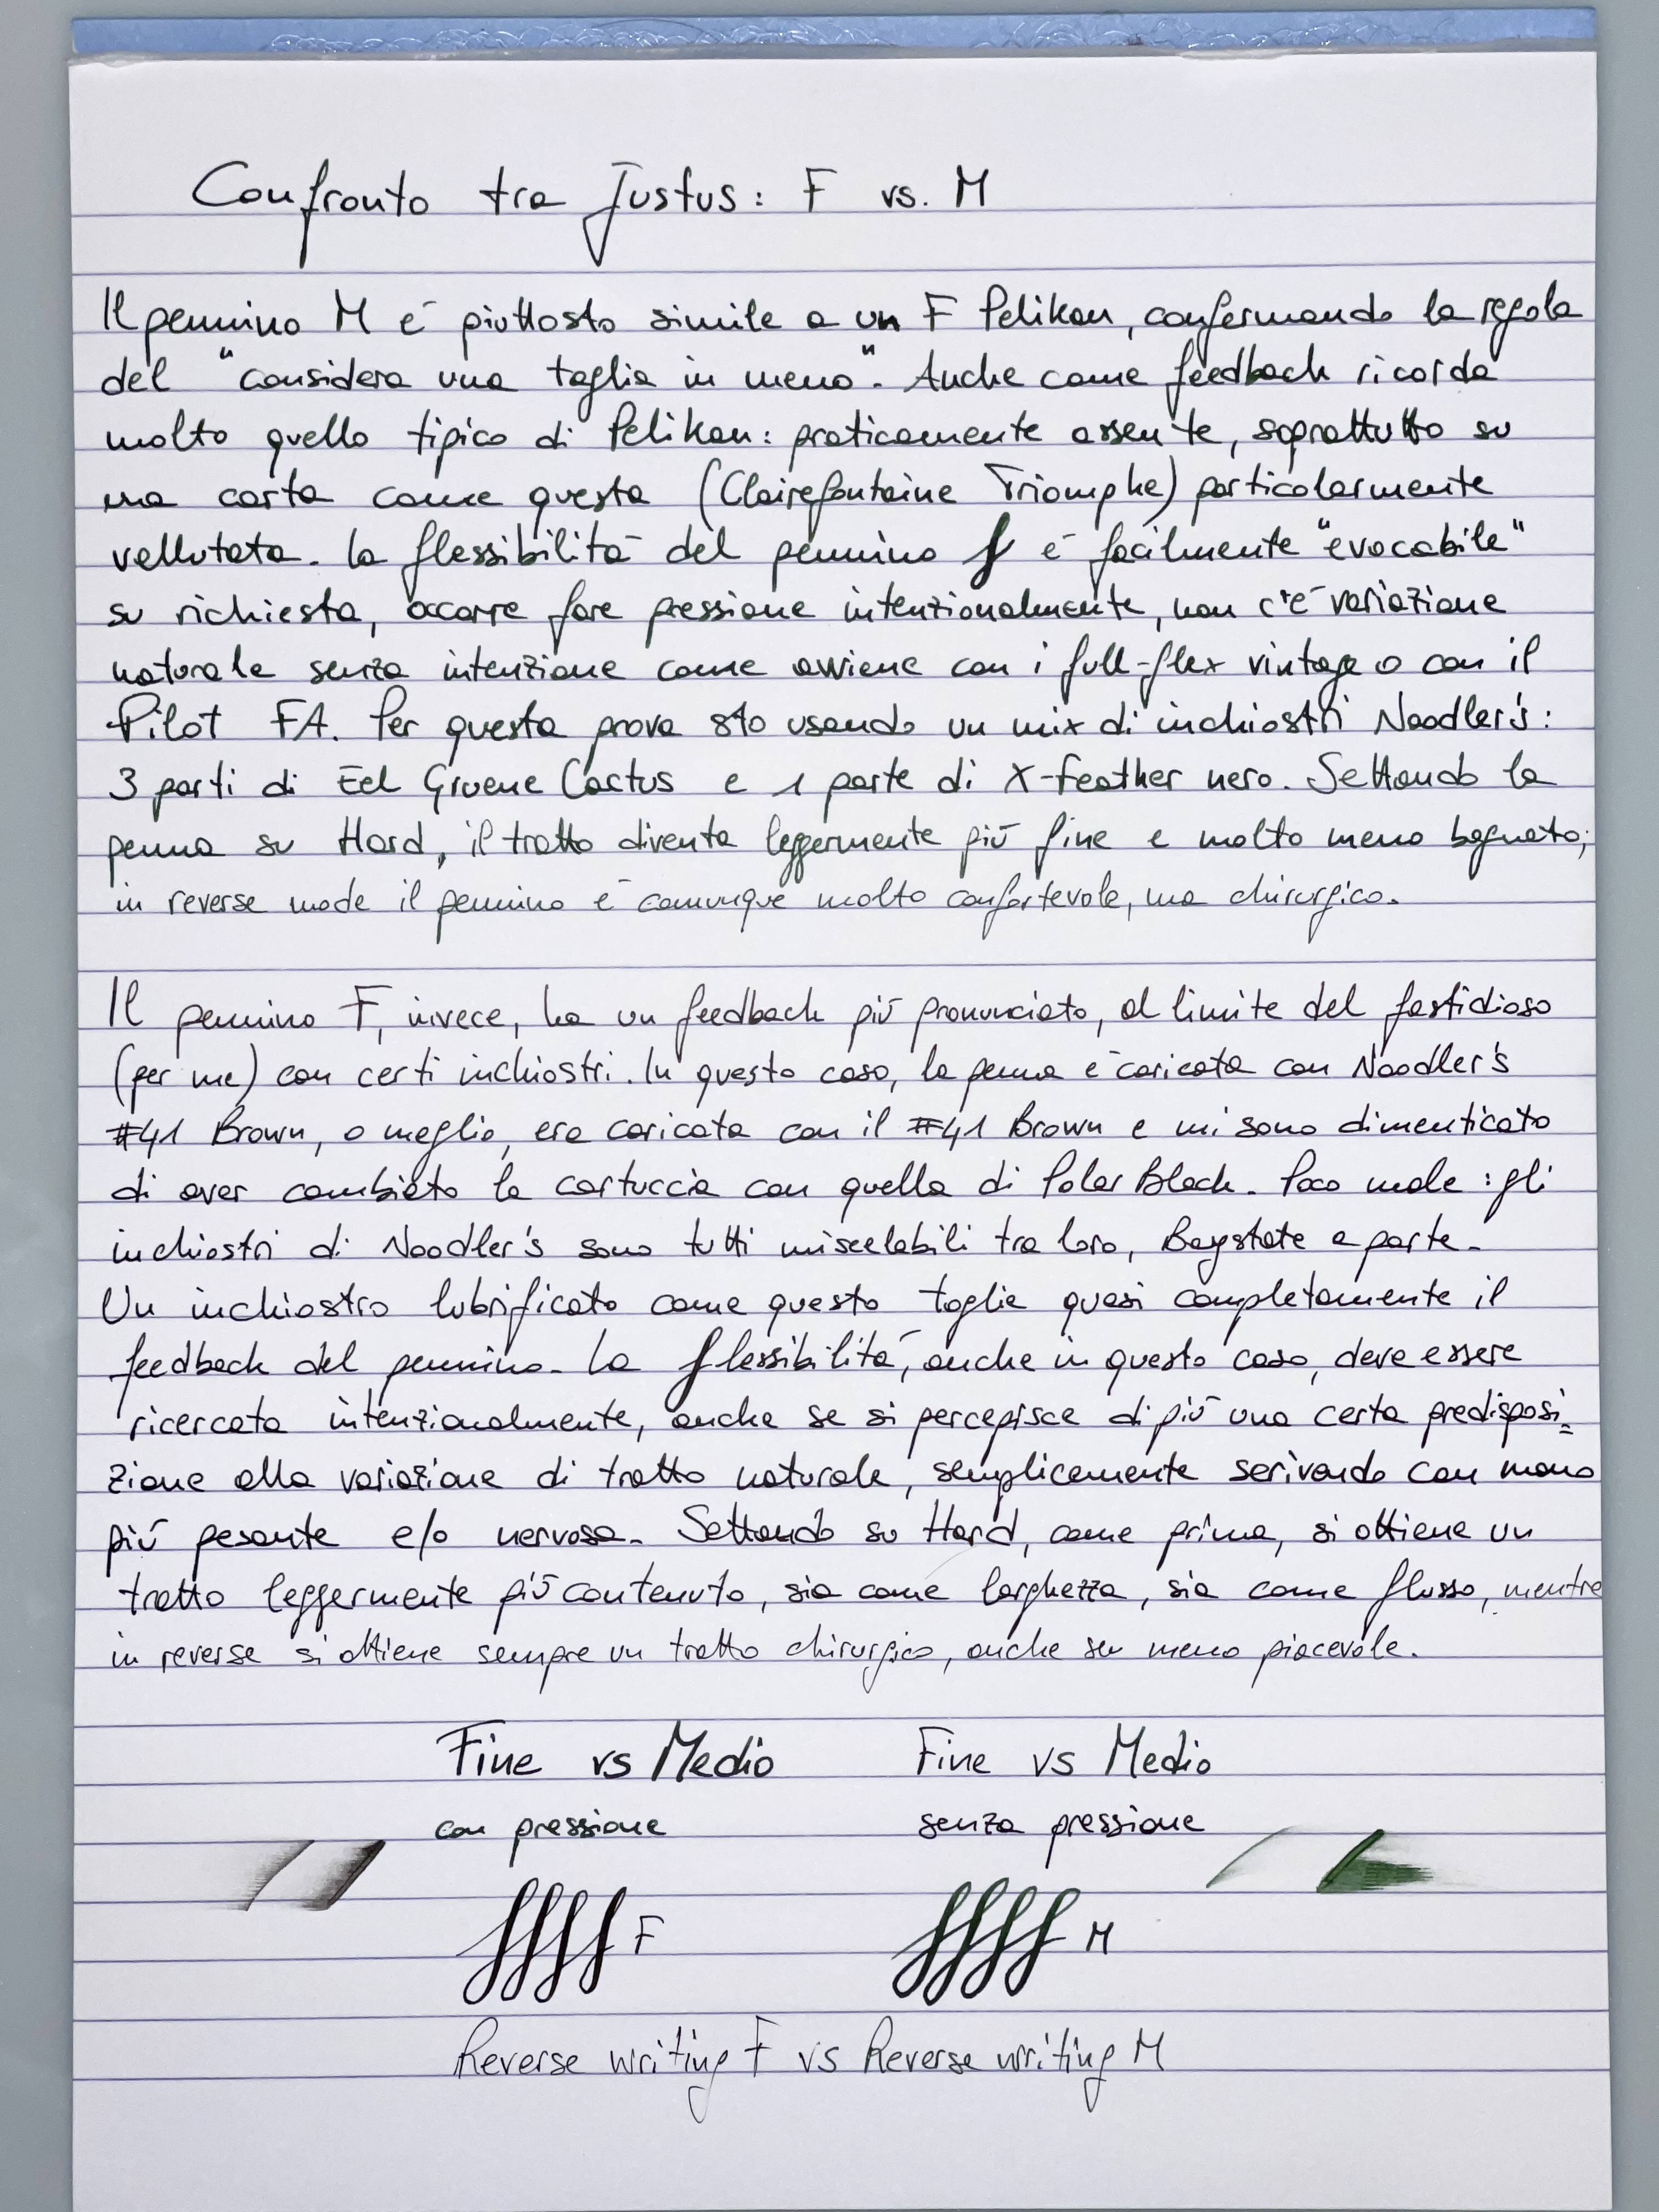 Confronto tra Justus: F vs. M
Il pennino M é piuttosto simile a un F Pelikan, confermando la regola
del "considera una taglia in meno". Anche come feedback ricorda
molto quello tipico di Pelikan: praticamente assente, soprattutto su
una carta come questa (Clairefontaine Triomphe) particolarmente
vellutata. La flessibilitá del pennino f é facilmente "evocabile"
su richiesta, occorre fare pressione intenzionalmente, non c'é variazione
naturale senza intenzione come avviene con i full-flex vintage o con il
Pilot FA. Per questa prova sto usando un mix di inchiostri Noodler's:
3 parti di Eel Gruene Cactus e 1 parte di X-Feather nero. Settando la
penna su Hard, il tratto diventa leggermente piú fine e molto meno bagnato;
in reverse mode il pennino é comunque molto confortevole, ma chirurgico.
Il pennino F, invece, ha un feedback piú pronunciato, al limite del fastidioso
(per me) con certi inchiostri. In questo caso, la penna é caricata con Noodler's
#41 Brown, o meglio, era caricata con il #41 Brown e mi sono dimenticato
di aver cambiato la cartuccia con quella di Polar Black. Poco male: gli
inchiostri di Noodler's sono tutti miscelabili tra loro, Baystate a parte.
Un inchiostro lubrificato come questo toglie quasi completamente il
feedback del pennino. La flessibilitá, anche in questo caso, deve essere
ricercata intenzionalmente, anche se si percepisce di piú una certa predisposi=
zione alla variazione di tratto naturale, semplicemente scrivendo con mano
piú pesante e/o nervosa. Settando su Hard, come prima, si ottiene un
tratto leggermente piú contenuto, sia come larghezza, sia come flusso, mentre
in reverse si ottiene sempre un tratto chirurgico, anche se meno piacevole.
Fine vs Medio Fine vs Medio
con pressione senza pressione
ffff F ffff M
Reverse writing F vs Reverse writing M